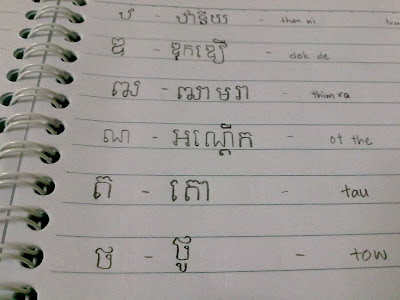 ឋ - ឋានីយ - than ni
ឌ - ឌុកឌឿ - dok de
ឍ - ឍាមរា - thim ra
ណ - អណ្ដើក - ot the
ត - តោ - tau
ថ - ថូ - tow